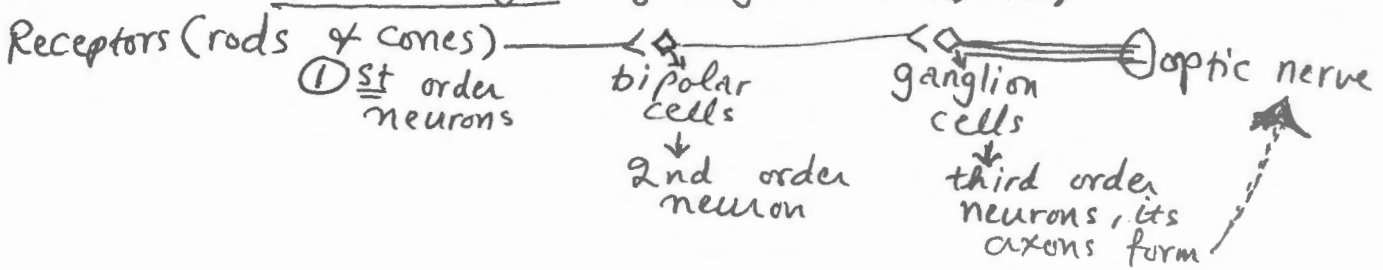 Receptors (rods & cones) optic nerve
① st order
neurons
bipolar
cells
2nd order
neuron
ganglion
cells
third order
neurons, its
axons form